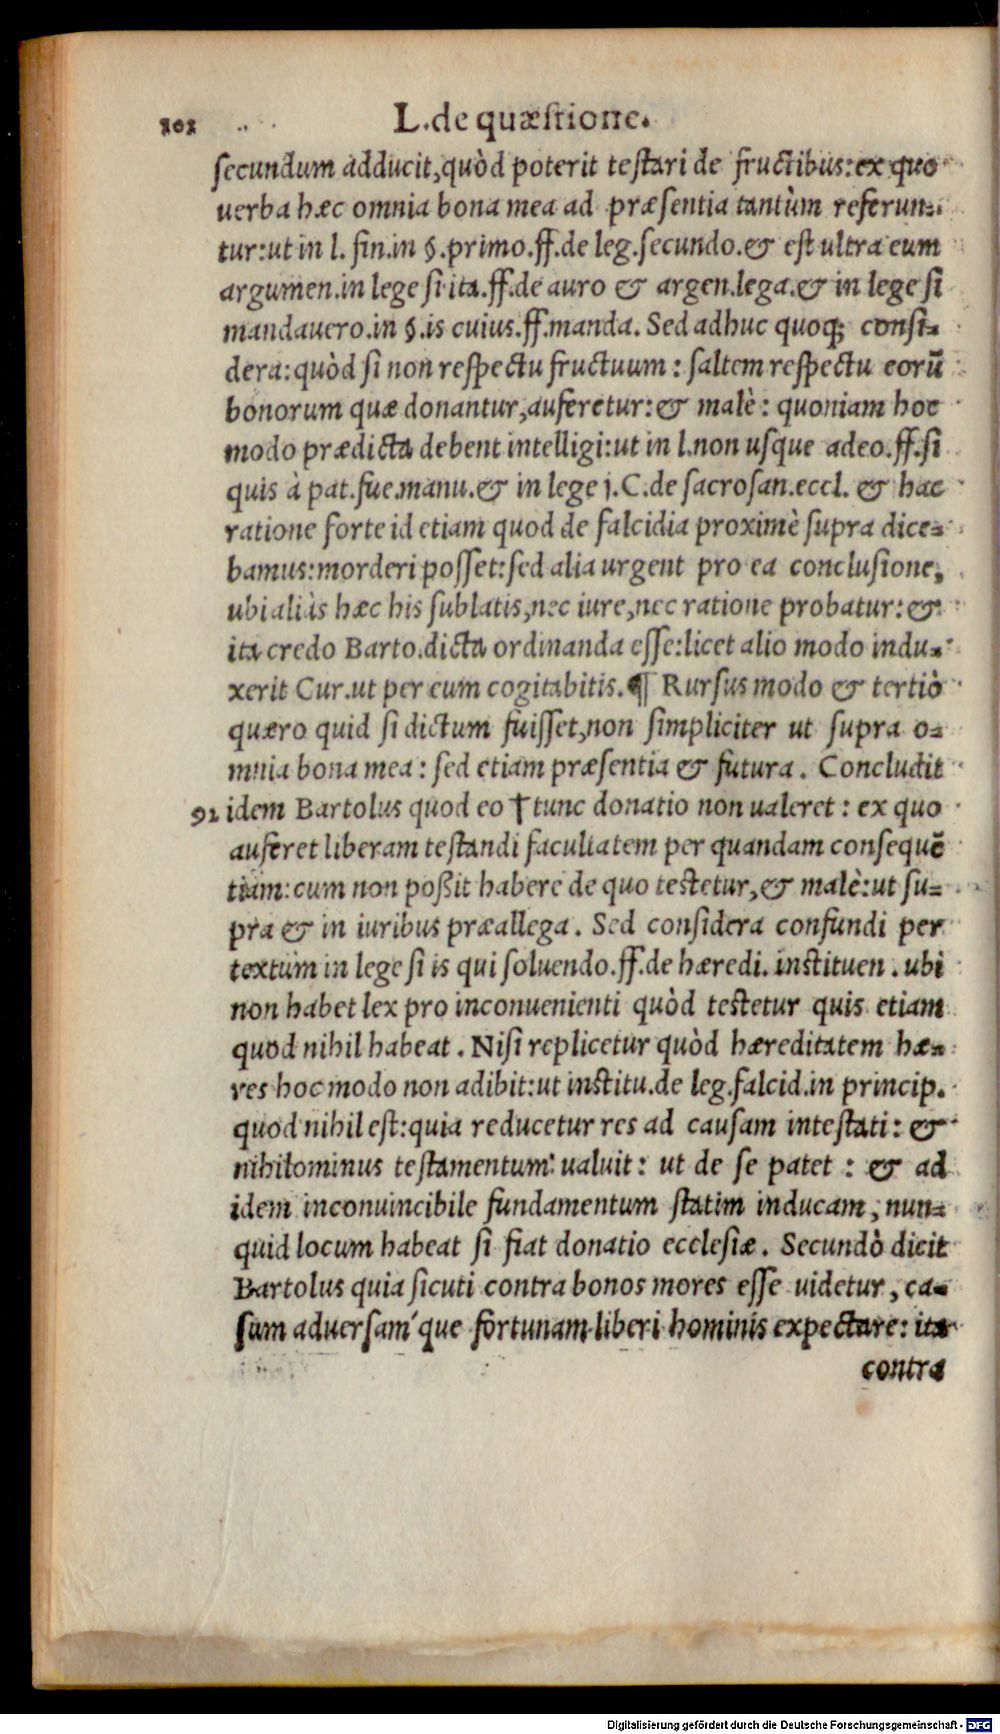 202 L.de quæstione.
secundum adducit,quòd poterit testari de fructibus:ex quo
uerba hæc omnia bona mea ad præsentia tantùm referun=
tur:ut in l. fin.in §.primo.ff.de leg.secundo.& est ultra eum
argumen.in lege si ita.ff.de auro & argen.lega.& in lege si
mandauero.in §.is cuius.ff.manda. Sed adhuc quoq; consi=
dera:quòd si non respectu fructuum: saltem respectu eorũ
bonorum quæ donantur,auferetur:& malè: quoniam hoc
modo prædicta debent intelligi:ut in l.non usque adeo.ff.si
quis à pat.fue.manu.& in lege j.C.de sacrosan.eccl. & hac
ratione forte id etiam quod de falcidia proximè supra dice=
bamus:morderi posset:sed alia urgent pro ea conclusione,
ubi aliàs hæc his sublatis,nec iure,nec ratione probatur:&
ita credo Barto.dicta ordinanda esse:licet alio modo indu=
xerit Cur.ut per eum cogitabitis.¶ Rursus modo & tertiò
quæro quid si dictum fuisset,non simpliciter ut supra o=
mnia bona mea: sed etiam præsentia & futura. Concludit
92 idem Bartolus quod eo † tunc donatio non ualeret: ex quo
auferet liberam testandi facultatem per quandam consequẽ
tiam:cum non poßit habere de quo testetur,& malè:ut su=
pra & in iuribus præallega. Sed considera confundi per
textum in lege si is qui soluendo.ff.de hæredi.instituen.ubi
non habet lex pro inconuenienti quòd testetur quis etiam
quod nihil habeat. Nisi replicetur quòd hæreditatem hæ=
res hoc modo non adibit:ut institu.de leg.falcid.in princip.
quod nihil est:quia reducetur res ad causam intestati: &
nihilominus testamentum ualuit: ut de se patet: & ad
idem inconuincibile fundamentum statim inducam, nun=
quid locum habeat si fiat donatio ecclesiæ. Secundò dicit
Bartolus quia sicuti contra bonos mores esse uidetur, ca=
sum aduersam'que fortunam liberi hominis expectare: ita
contra
Digitalisierung gefördert durch die Deutsche Forschungsgemeinschaft - DFG